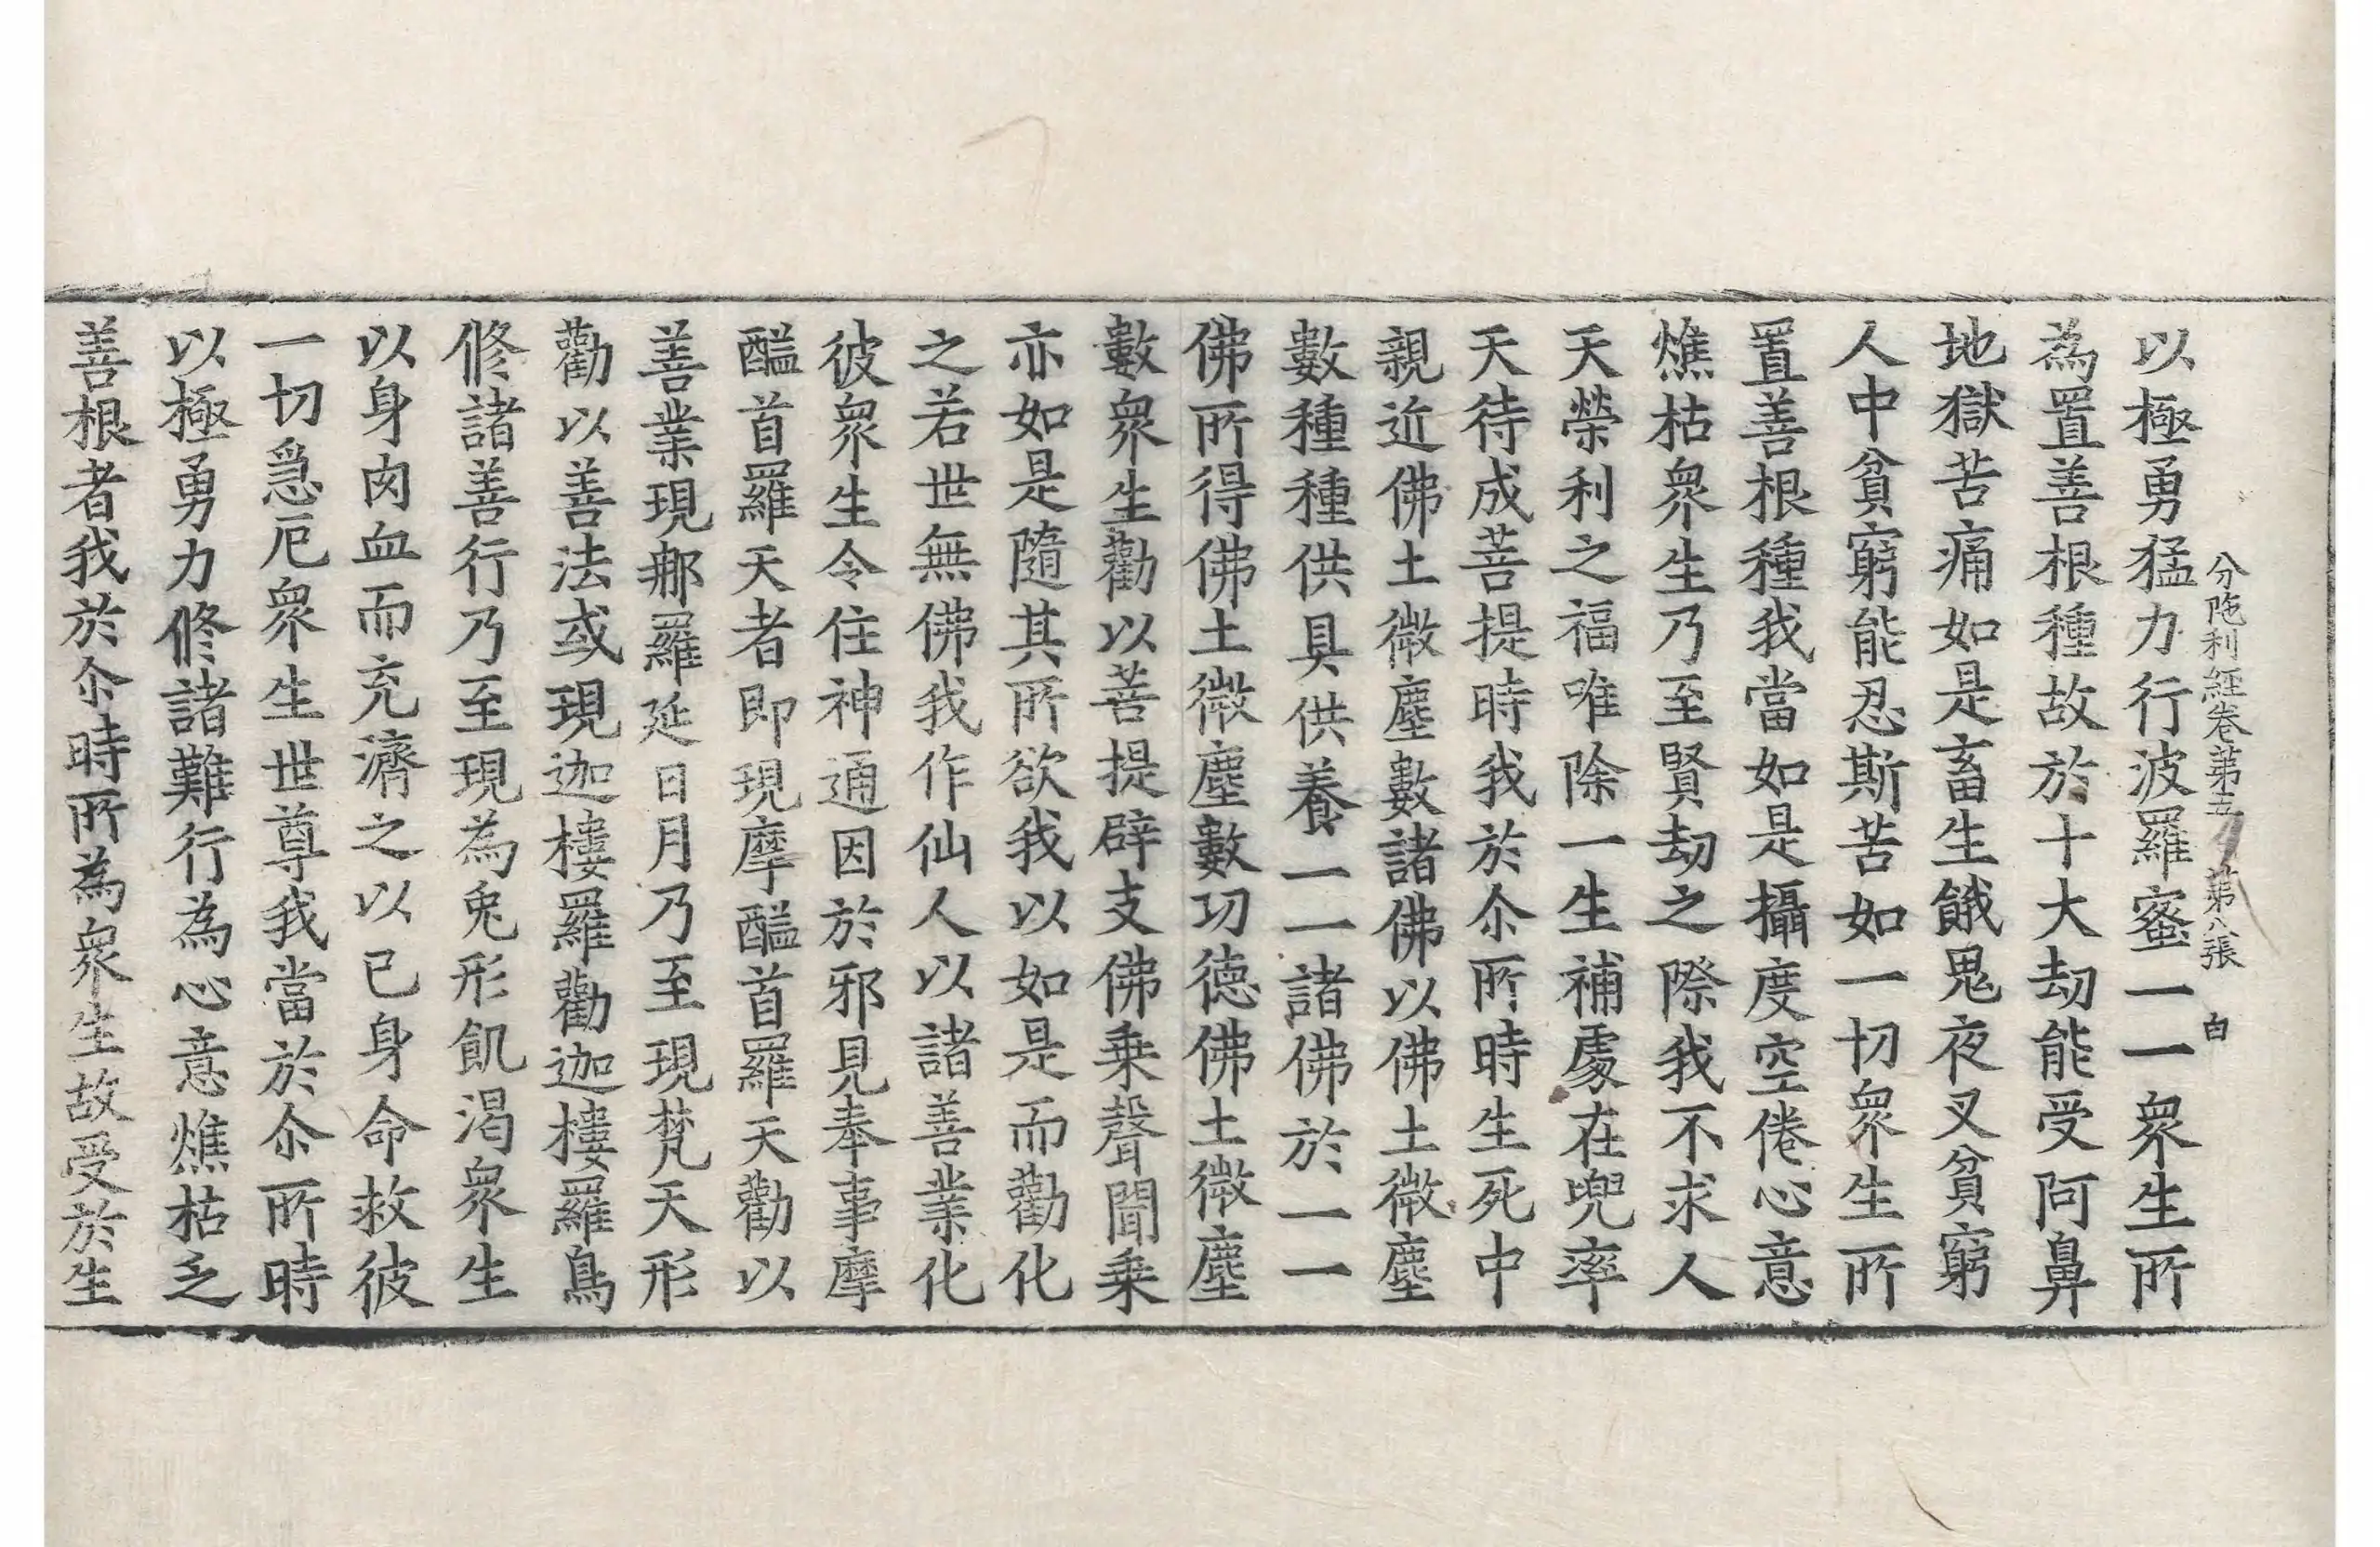 分陁利經卷第五 第八張 白
以極勇猛力行波羅蜜一一衆生所
為置善根種故於十大劫能受阿鼻
地獄苦痛如是畜生餓鬼夜叉貧窮
人中貧窮能忍斯苦如一切衆生所
置善根種我當如是攝度空倦心意
燋枯衆生乃至賢劫之際我不求人
天榮利之福唯除一生補處在兜率
天待成菩提時我於尒所時生死中
親近佛土微塵數諸佛以佛土微塵
數種種供具供養一一諸佛於一一
佛所得佛土微塵數功德佛土微塵
數衆生勸以菩提辟支佛乗聲聞乗
亦如是隨其所欲我以如是而勸化
之若世無佛我作仙人以諸善業化
彼衆生令住神通因於邪見奉事摩
醯首羅天者即現摩醯首羅天勸以
善業現𨚗羅延日月乃至現梵天形
勸以善法或現迦樓羅勸迦樓羅鳥
修諸善行乃至現為兔形飢渴衆生
以身肉血而充濟之以己身命救彼
一切急厄衆生世尊我當於尒所時
以極勇力修諸難行為心意燋枯乏
善根者我於尒時所為衆生故受於生